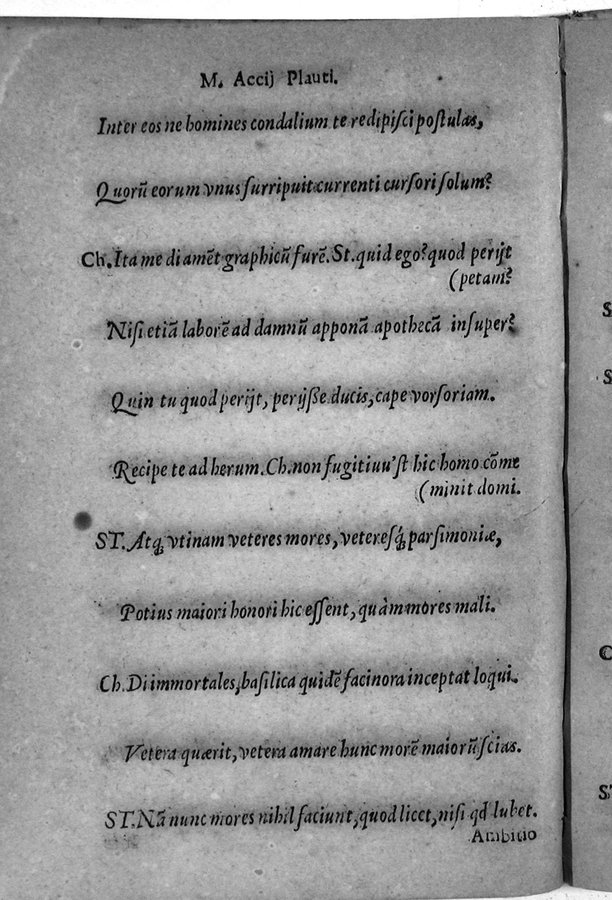 M. Accij Plauti.
Inter eos ne homines condalium te redipisci postulas,
Quorũ eorum vnus surripuit currenti cursori solum?
Ch. Ita me di amẽt graphicũ furẽ. St. quid ego? quod perijt
(petam?
Nisi etiã laborẽ ad damnũ apponã apothecã insuper?
Quin tu quod perijt, perijsse ducis, cape vorsoriam.
Recipe te ad herum. Ch. non fugitiuu'st hic homo cõme
(minit domi.
ST. Atq; vtinam veteres mores, veteresq́; parsimoniæ,
Potius maiori honori hic essent, quàm mores mali.
Ch. Di immortales, basilica quidẽ facinora inceptat loqui.
Vetera quærit, vetera amare hunc morẽ maiorũ scias.
ST. Nã nunc mores nihil faciunt, quod licet, nisi qđ lubet.
Ambitio
S
S
C
S